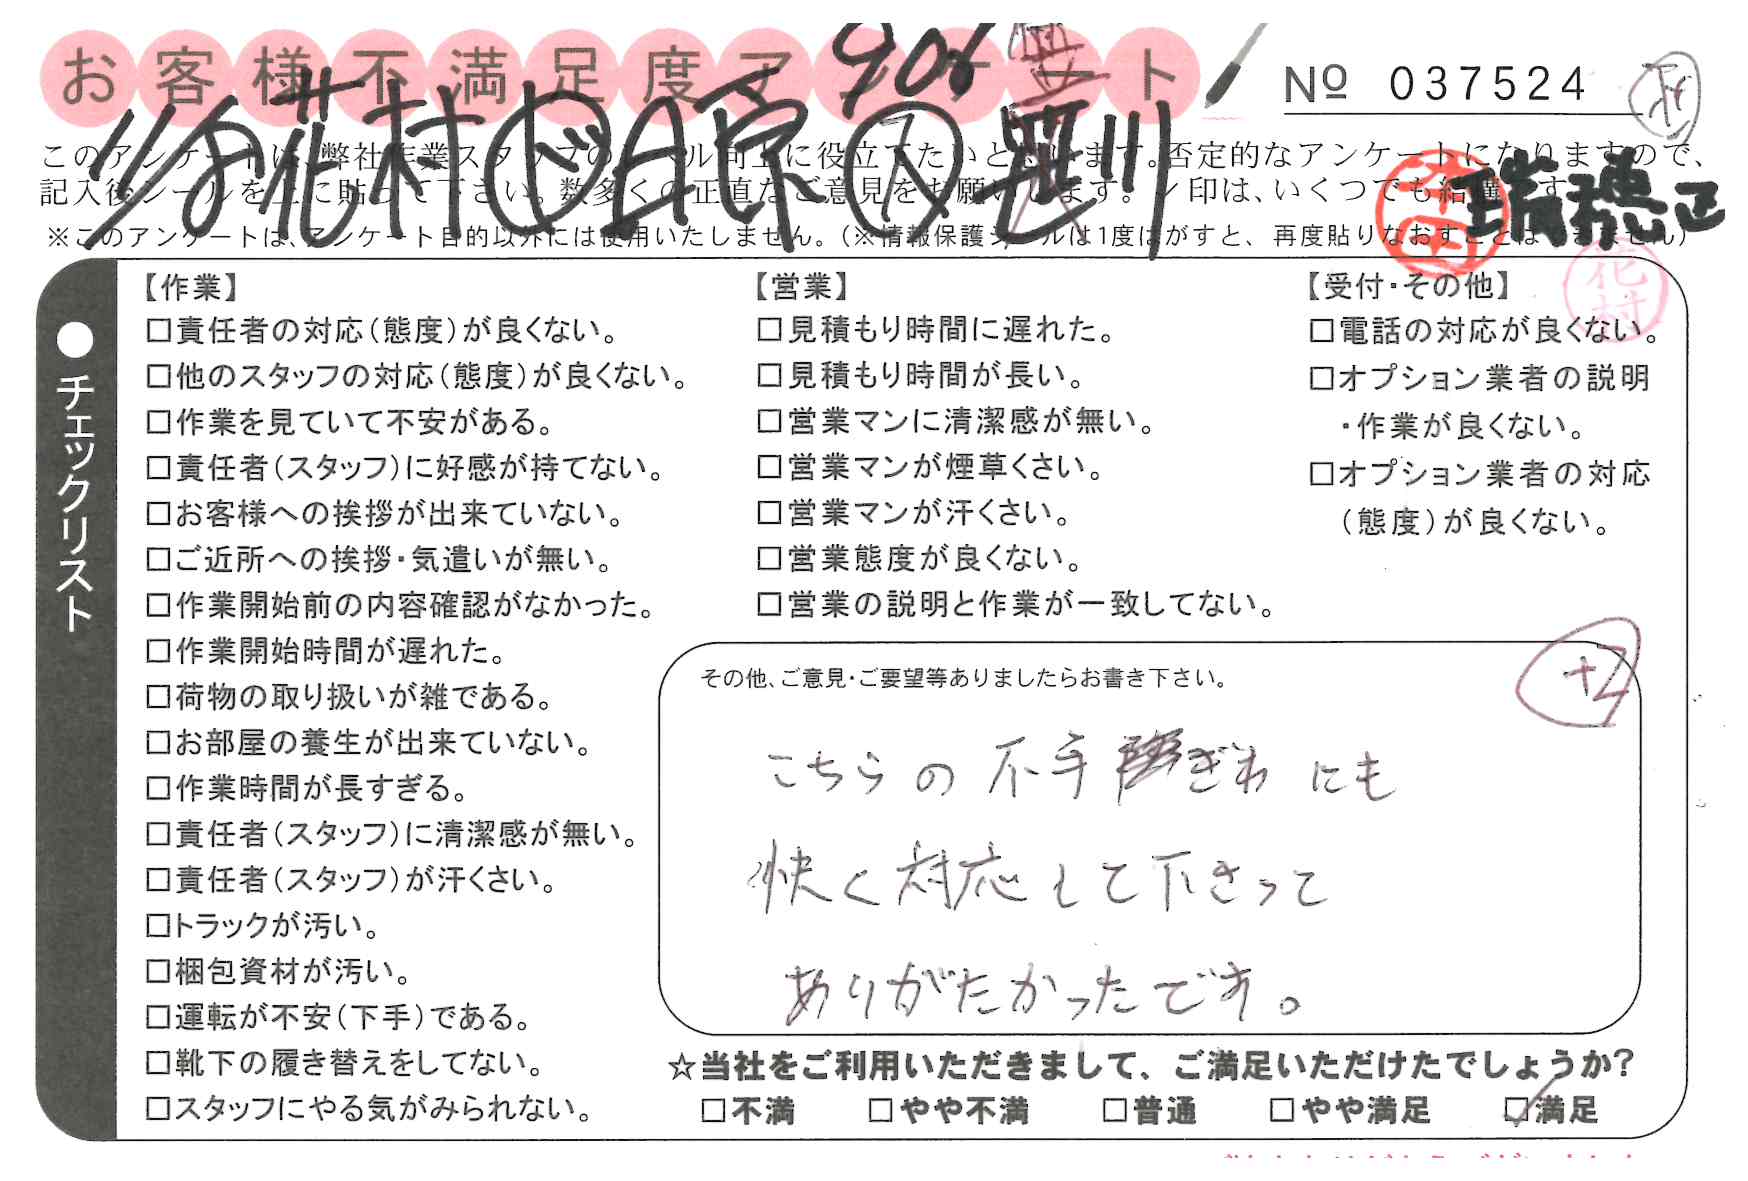 お客様不満足度アンケート
906
№ 037524
花村 白京 黒川
瑞穂区
このアンケートは、弊社作業スタッフのレベル向上に役立てたいと思います。否定的なアンケートになりますので、
記入後シールを上に貼って下さい。数多くの正直なご意見をお願いします。レ印は、いくつでも結構です。
※このアンケートは、アンケート目的以外には使用いたしません。(※情報保護シールは1度はがすと、再度貼りなおすことはできません)
花村
●チェックリスト
【作業】
□責任者の対応(態度)が良くない。
□他のスタッフの対応(態度)が良くない。
□作業を見ていて不安がある。
□責任者(スタッフ)に好感が持てない。
□お客様への挨拶が出来ていない。
□ご近所への挨拶・気遣いが無い。
□作業開始前の内容確認がなかった。
□作業開始時間が遅れた。
□荷物の取り扱いが雑である。
□お部屋の養生が出来ていない。
□作業時間が長すぎる。
□責任者(スタッフ)に清潔感が無い。
□責任者(スタッフ)が汗くさい。
□トラックが汚い。
□梱包資材が汚い。
□運転が不安(下手)である。
□靴下の履き替えをしてない。
□スタッフにやる気がみられない。
【営業】
□見積もり時間に遅れた。
□見積もり時間が長い。
□営業マンに清潔感が無い。
□営業マンが煙草くさい。
□営業マンが汗くさい。
□営業態度が良くない。
□営業の説明と作業が一致してない。
【受付・その他】
□電話の対応が良くない。
□オプション業者の説明
・作業が良くない。
□オプション業者の対応
(態度)が良くない。
その他、ご意見・ご要望等ありましたらお書き下さい。
+2
こちらの不手ぎわにも
快く対応して下さって
ありがたかったです。
☆当社をご利用いただきまして、ご満足いただけたでしょうか?
□不満 □やや不満 □普通 □やや満足 ☑満足